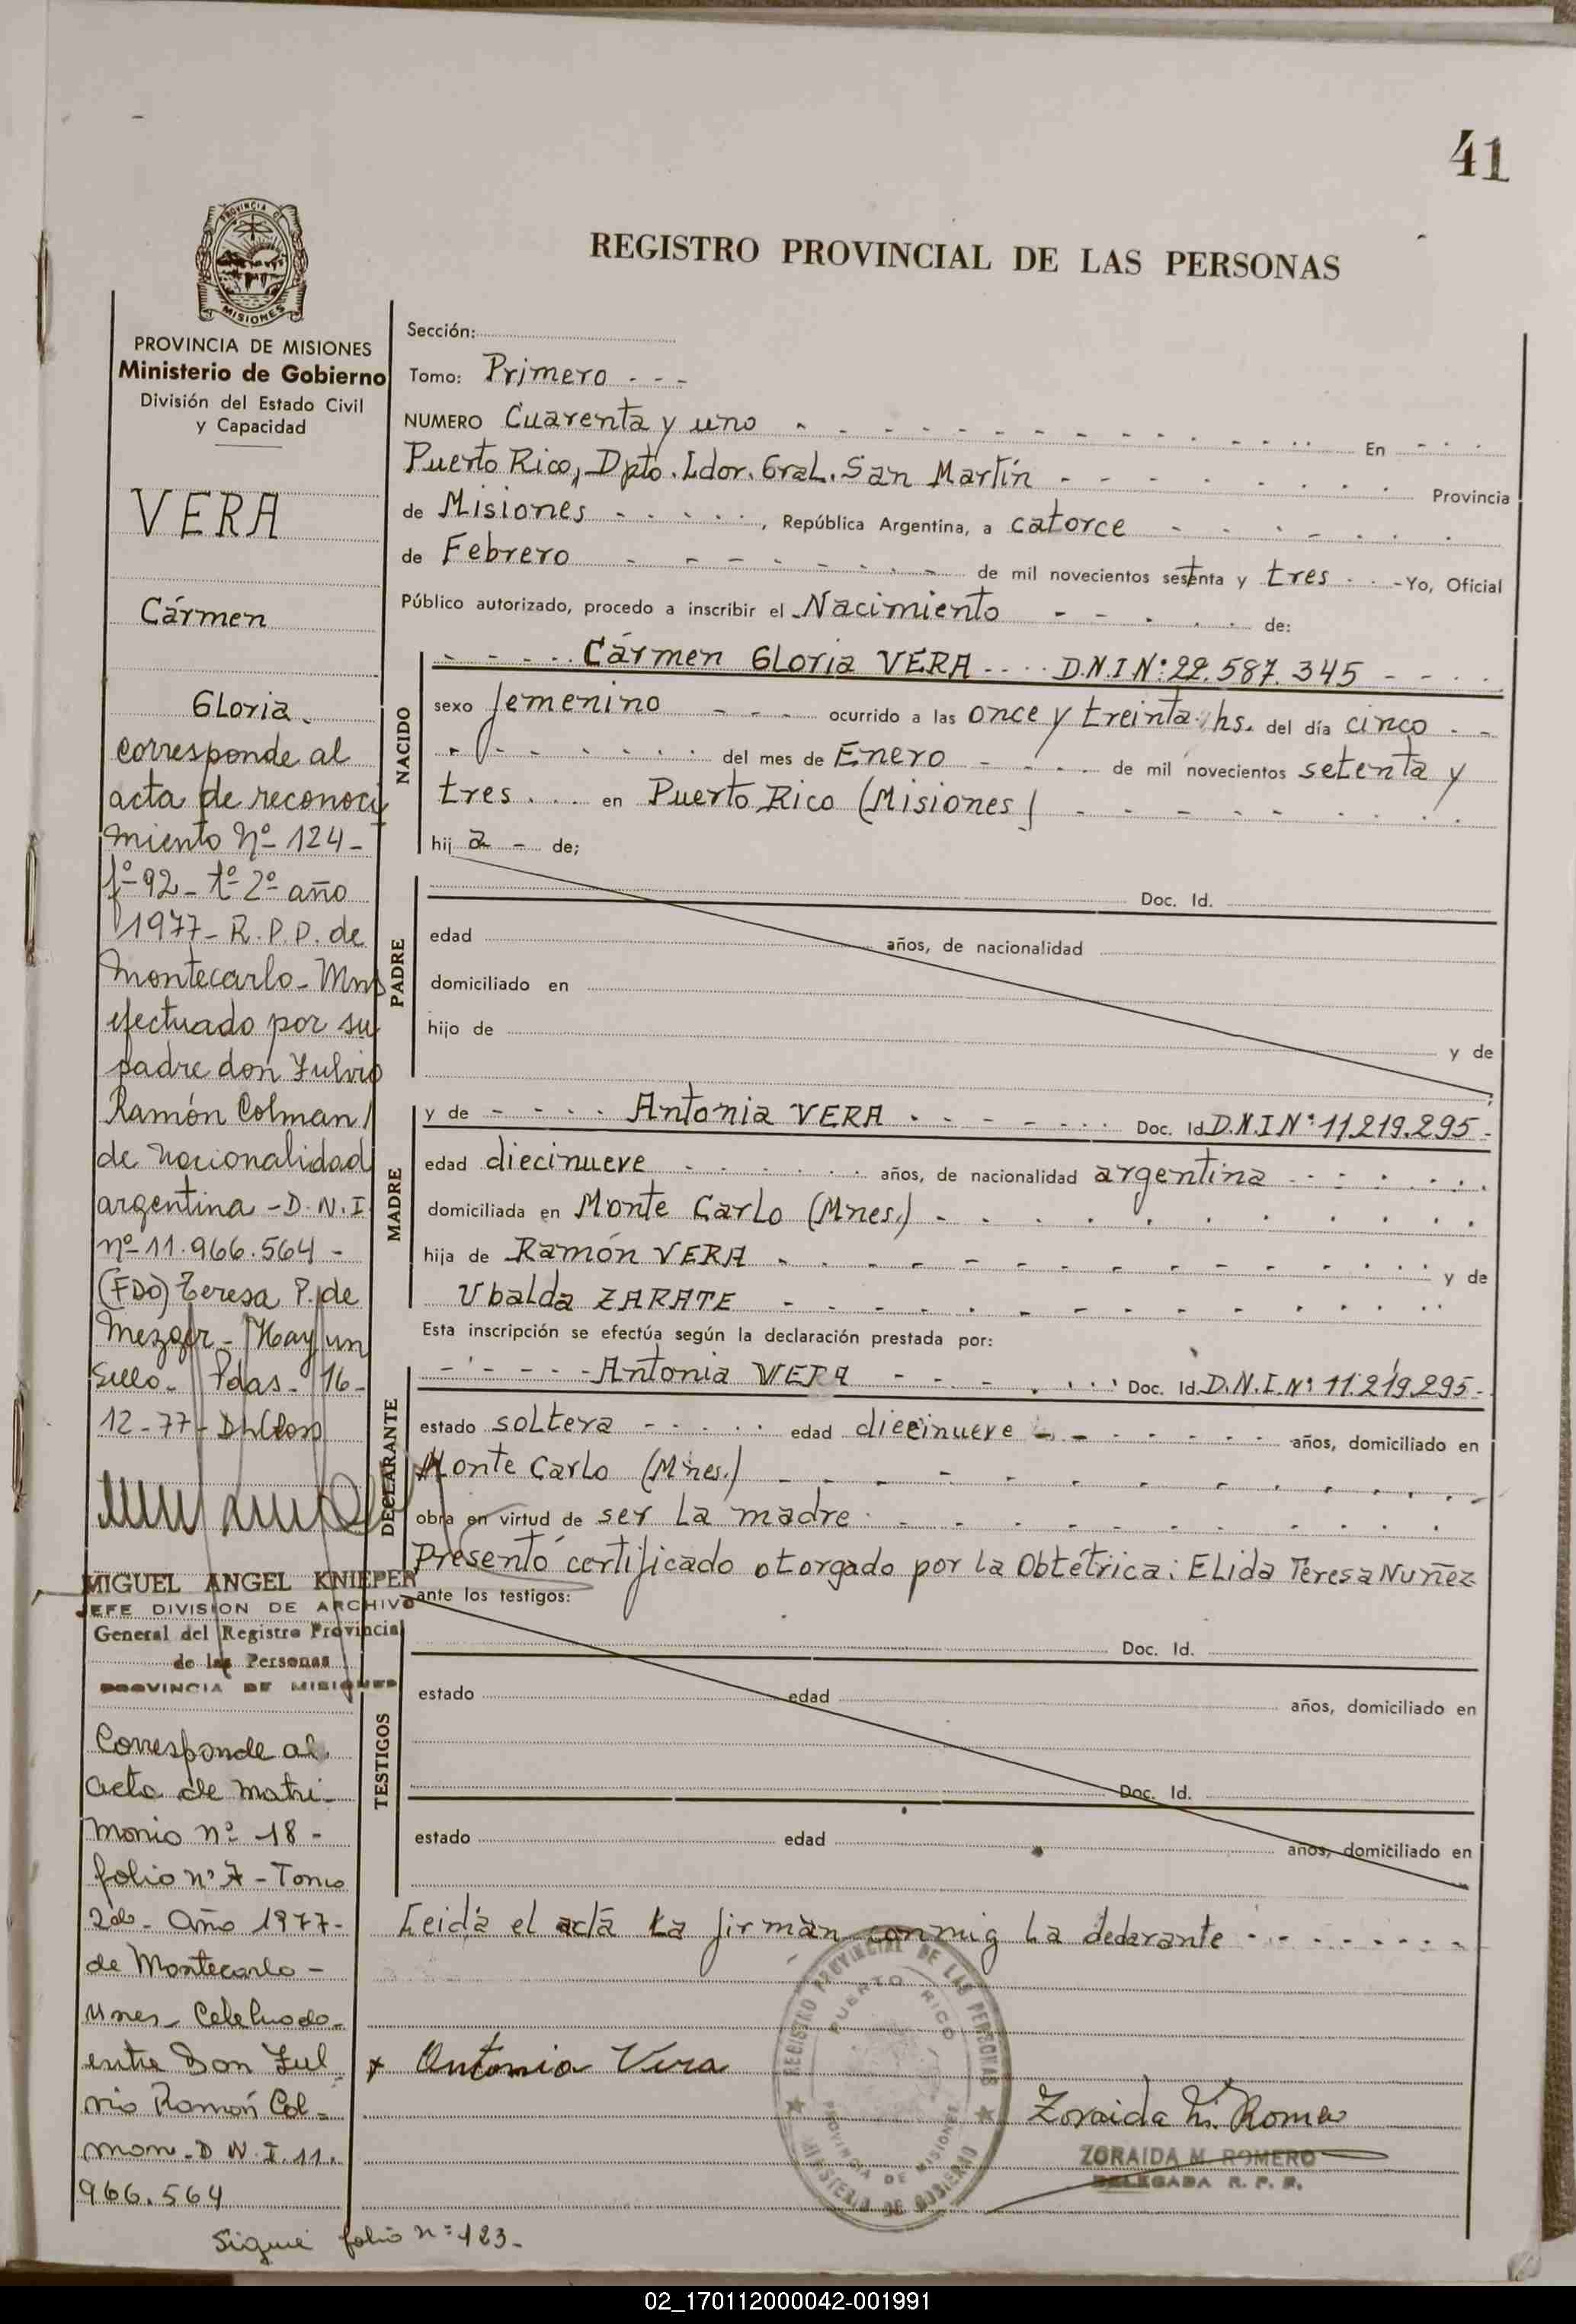 41
REGISTRO PROVINCIAL DE LAS PERSONAS
PROVINCIA DE
MISIONES
PROVINCIA DE MISIONES
Ministerio de Gobierno
División del Estado Civil
y Capacidad
VERA
Cármen
Gloria.
corresponde al
acta de reconoci
miento Nº 124-
fº-92- tº 2º año
1977- R.P.P. de
Montecarlo- Mns
efectuado por su
padre don Fulvio
Ramón Colman
de nacionalidad
argentina - D.N.I
nº 11.966.564 -
(FDO) Teresa P. de
Mezger - Hay un
Sello. Pdas. 16-
12-77-
MIGUEL ANGEL KNIEPER
JEFE DIVISION DE ARCHIVO
General del Registro Provincial
de las Personas
PROVINCIA DE MISIONES
Corresponde al
acta de matri-
monio nº 18 -
folio nº 7 - Tomo
2do - Año 1977-
de Montecarlo -
Mnes - Celebrado
entre Don Ful
vio Ramón Col-
man - D N. I. 11.
966.564
Sigue folio nº 123-
Sección:
Tomo: Primero - - -
NUMERO Cuarenta y uno - - - En - - -
Puerto Rico, Dpto. Ldor. Gral. San Martín - - - Provincia
de Misiones - - - , República Argentina, a catorce - - -
de Febrero - - - de mil novecientos setenta y tres - - - Yo, Oficial
Público autorizado, procedo a inscribir el Nacimiento - - - de:
NACIDO
- - - Cármen Gloria VERA - - - D.N.I Nº: 22.587.345 - - -
sexo femenino - - - ocurrido a las once y treinta hs. del día cinco - -
- - - del mes de Enero - - - de mil novecientos setenta y
tres - - - en Puerto Rico (Misiones) - - -
hij a - de;
PADRE
Doc. Id.
edad años, de nacionalidad
domiciliado en
hijo de y de
MADRE
y de - - - Antonia VERA - - - Doc. Id D.N.I Nº 11.219.295 -
edad diecinueve - - - años, de nacionalidad argentina - - -
domiciliada en Monte Carlo (Mnes.) - - -
hija de Ramón VERA - - - y de
Ubalda ZARATE - - -
Esta inscripción se efectúa según la declaración prestada por:
DECLARANTE
- - - Antonia VERA - - - Doc. Id. D.N.I. Nº 11.219.295 -
estado soltera - - - edad diecinueve - - - años, domiciliado en
Monte Carlo (Mnes.) - - -
obra en virtud de ser la madre - - -
Presentó certificado otorgado por la Obtétrica: Elida Teresa Nuñez
ante los testigos:
TESTIGOS
Doc. Id.
estado edad años, domiciliado en
Doc. Id.
estado edad años, domiciliado en
Leida el acta la firman conmig la declarante - - -
Antonia Vera
REGISTRO PROVINCIAL DE LAS PERSONAS
PUERTO RICO
PROVINCIA DE MISIONES
MINISTERIO DE GOBIERNO
Zoraida M. Romero
ZORAIDA M. ROMERO
DELEGADA R. P. P.
02_170112000042-001991